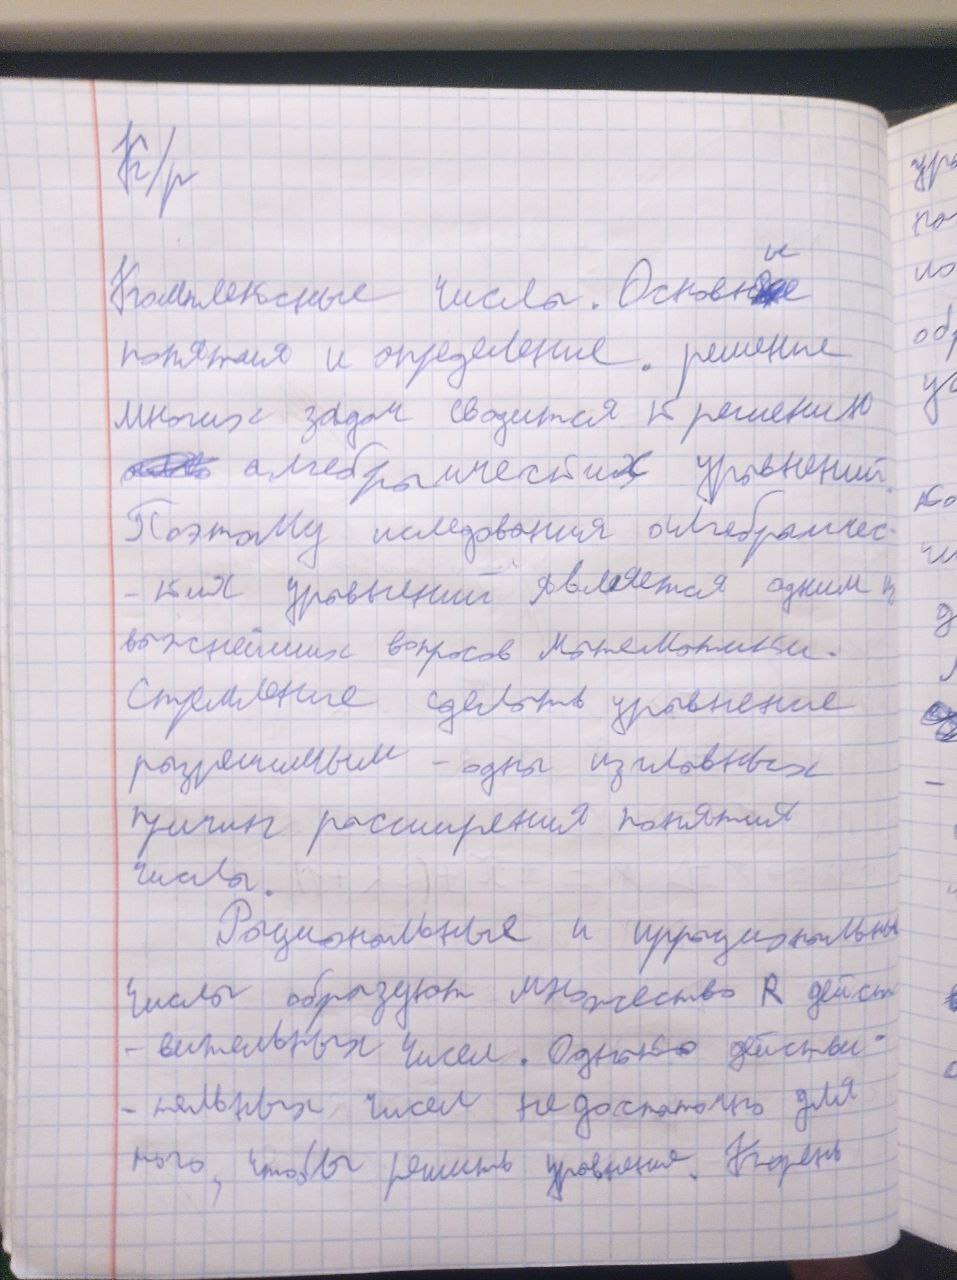 К/р
Комплексные числа. Основные
понятия и определение. решение
многих задач сводится к решению
алгебраических уравнений.
Поэтому иследования алгебраичес-
- ких уравнений является одним из
важнейших вопросов математики.
Стремление сделать уравнение
разрешимым - одна из главных
причин расширения понятия
числа.
Рациональные и иррациональны
числа образуют множество R дейст
- вительных чисел. Однако действи-
- тельных чисел недостаточно для
того, чтобы решить уравнения. Корень